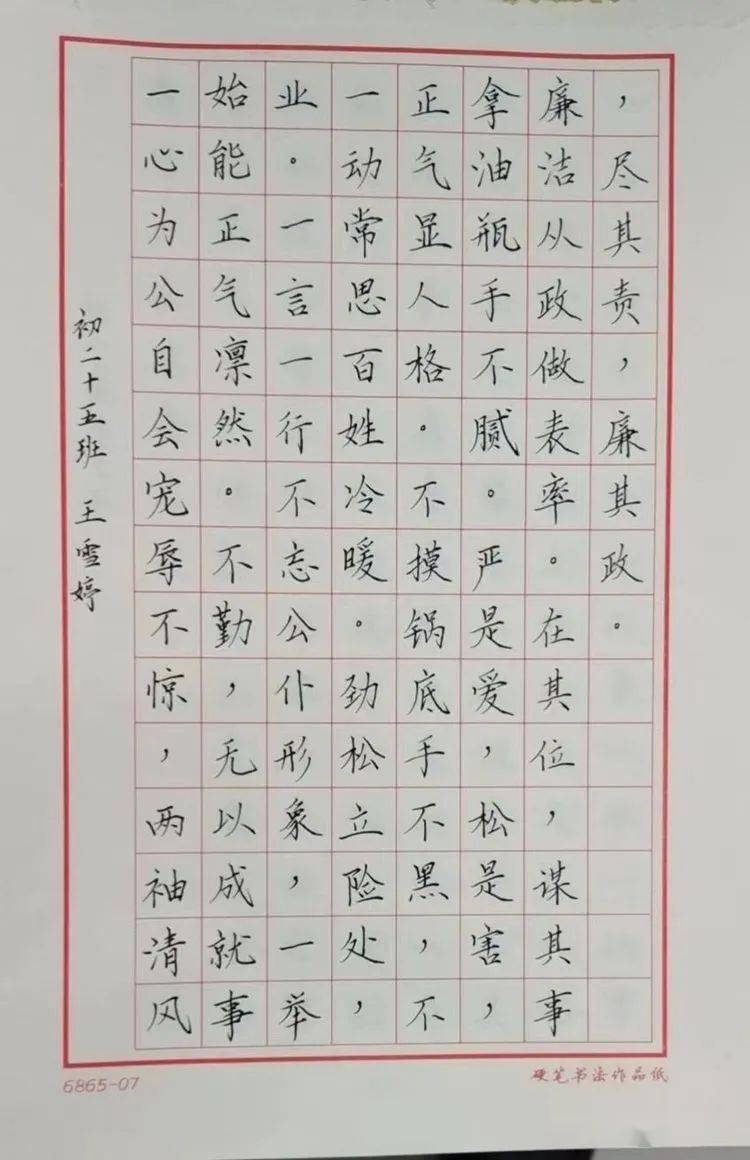 一心为公自会宠辱不惊，两袖清风
始能正气凛然。不勤，无以成就事
业。一言一行不忘公仆形象，一举
一动常思百姓冷暖。劲松立险处，
正气显人格。不摸锅底手不黑，不
拿油瓶手不腻。严是爱，松是害，
廉洁从政做表率。在其位，谋其事
，尽其责，廉其政。
初二十五班 王雪婷
6865-07
硬笔书法作品纸